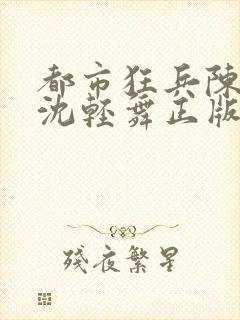 都市狂兵陳
沈輕舞正版
殘夜繁星